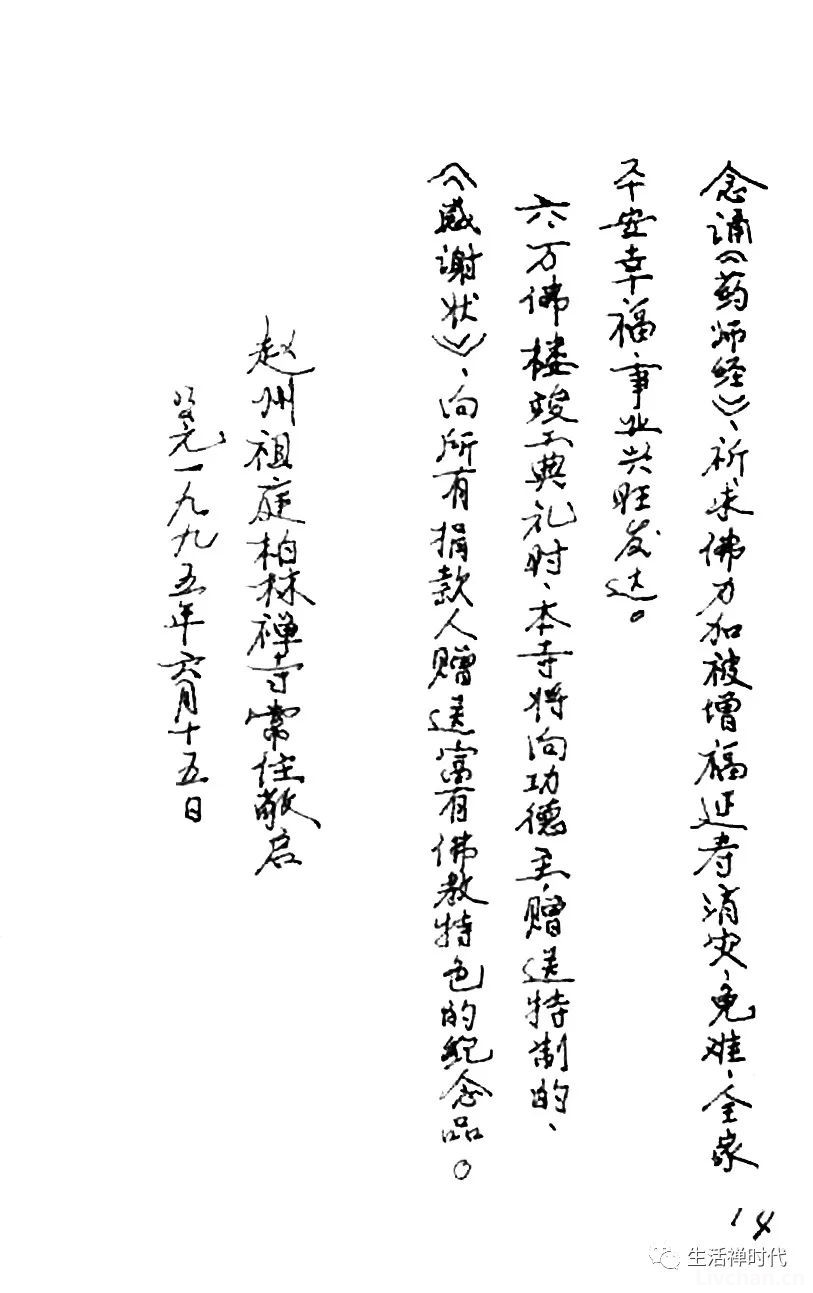 念诵《药师经》、祈求佛力加被增福延寿消灾、免难、全家
平安幸福、事业兴旺发达。
六、万佛楼竣工典礼时、本寺将向功德主、赠送特制的、
《感谢状》、向所有捐款人赠送富有佛教特色的纪念品。
赵州祖庭柏林禅寺常住敬启
公元一九九五年六月十五日
14
生活禅时代
Livchan.cn